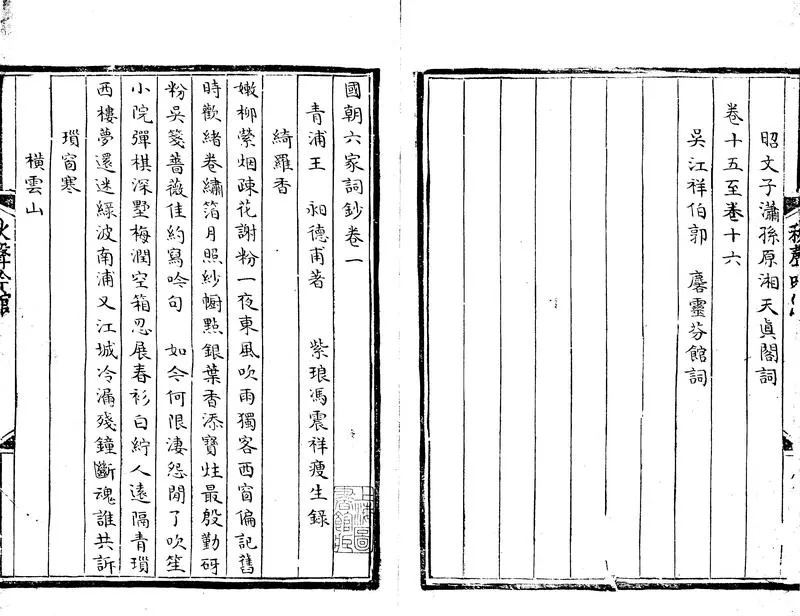 昭文子瀟孫原湘天眞閣詞
卷十五至卷十六
吳江祥伯郭 麐靈芬館詞
國朝六家詞鈔卷一
青浦王 昶德甫著 紫琅馮震祥瘦生錄
綺羅香
嫩柳縈烟疎花謝粉一夜東風吹雨獨客西窗偏記舊
時歡緒卷繡箔月照紗幮㸃銀葉香添寶炷最殷勤砑
粉吳箋薔薇佳約寫吟句 如今何限淒怨閒了吹笙
小院彈棋深墅梅潤空箱忍展春衫白紵人遠隔青瑣
西樓夢還迷綠波南浦又江城冷漏殘鐘斷魂誰共訴
瑣窗寒
橫雲山
上海圖
書館藏